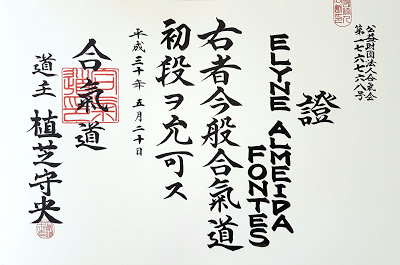 公益財団法人合気会
第一七六七六八号
證
ELYNE ALMEIDA
FONTES
右者今般合氣道
初段ヲ允可ス
平成三十年 五月二十日
合氣道
道主 植芝守央